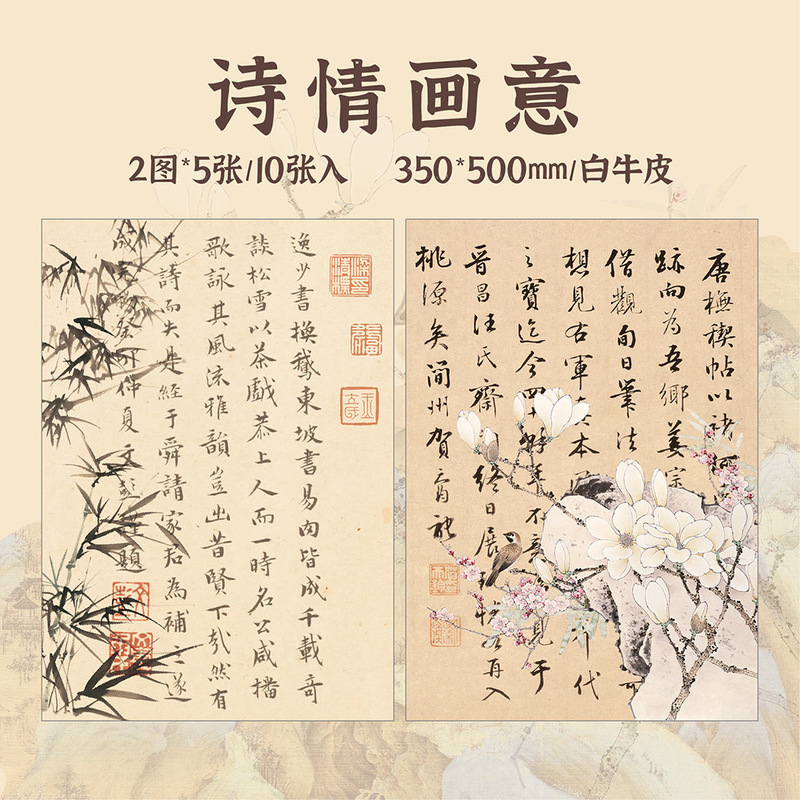 诗情画意
2图*5张/10张入 350*500mm/白牛皮
逸少書換鵝東坡書易肉皆成千載奇
談松雪以茶戲恭上人而一時名公咸播
歌詠其風流雅韻豈出昔賢下哉然有
其詩而失是經于舜請家君為補之遂
成完物癸卯仲夏文彭謹題
唐橅禊帖以褚河
跡向為吾鄉姜宗
借觀旬日筆法
想見右軍真本
之寶迄今四十餘年不意見于
晋昌汪氏齋終日展再入
桃源矣簡州賀